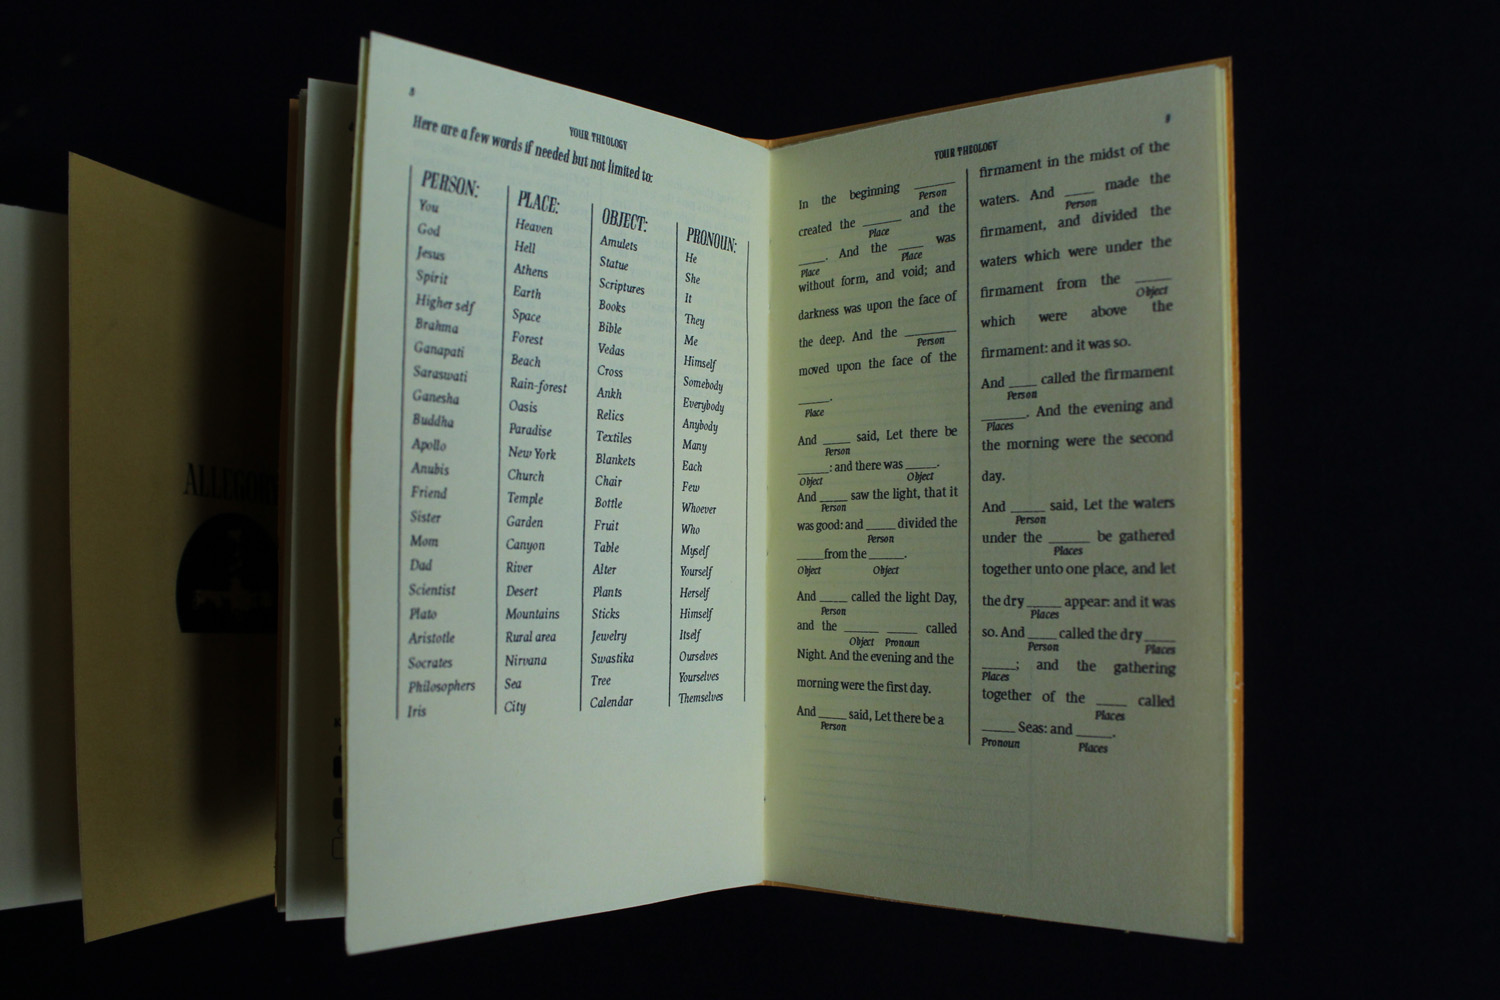 ALLEGOR
8
YOUR THEOLOGY
Here are a few words if needed but not limited to:
PERSON:
You
God
Jesus
Spirit
Higher self
Brahma
Ganapati
Saraswati
Ganesha
Buddha
Apollo
Anubis
Friend
Sister
Mom
Dad
Scientist
Plato
Aristotle
Socrates
Philosophers
Iris
PLACE:
Heaven
Hell
Athens
Earth
Space
Forest
Beach
Rain-forest
Oasis
Paradise
New York
Church
Temple
Garden
Canyon
River
Desert
Mountains
Rural area
Nirvana
Sea
City
OBJECT:
Amulets
Statue
Scriptures
Books
Bible
Vedas
Cross
Ankh
Relics
Textiles
Blankets
Chair
Bottle
Fruit
Table
Alter
Plants
Sticks
Jewelry
Swastika
Tree
Calendar
PRONOUN:
He
She
It
They
Me
Himself
Somebody
Everybody
Anybody
Many
Each
Few
Whoever
Who
Myself
Yourself
Herself
Himself
Itself
Ourselves
Yourselves
Themselves
9
YOUR THEOLOGY
In the beginning ______
Person
created the ______ and the
Place
____. And the ____ was
Place Place
without form, and void; and
darkness was upon the face of
the deep. And the ________
Person
moved upon the face of the
_____.
Place
And ____ said, Let there be
Person
_____: and there was _____.
Object Object
And ____ saw the light, that it
Person
was good: and ____ divided the
Person
____from the _____.
Object Object
And ____ called the light Day,
Person
and the _____ _____ called
Object Pronoun
Night. And the evening and the
morning were the first day.
And ____ said, Let there be a
Person
firmament in the midst of the
waters. And ____ made the
Person
firmament, and divided the
waters which were under the
firmament from the _____
Object
which were above the
firmament: and it was so.
And ____ called the firmament
Person
______. And the evening and
Places
the morning were the second
day.
And _____ said, Let the waters
Person
under the ______ be gathered
Places
together unto one place, and let
the dry _____ appear: and it was
Places
so. And ____ called the dry ____
Person Places
_____; and the gathering
Places
together of the ____ called
Places
_____ Seas: and _____.
Pronoun Places